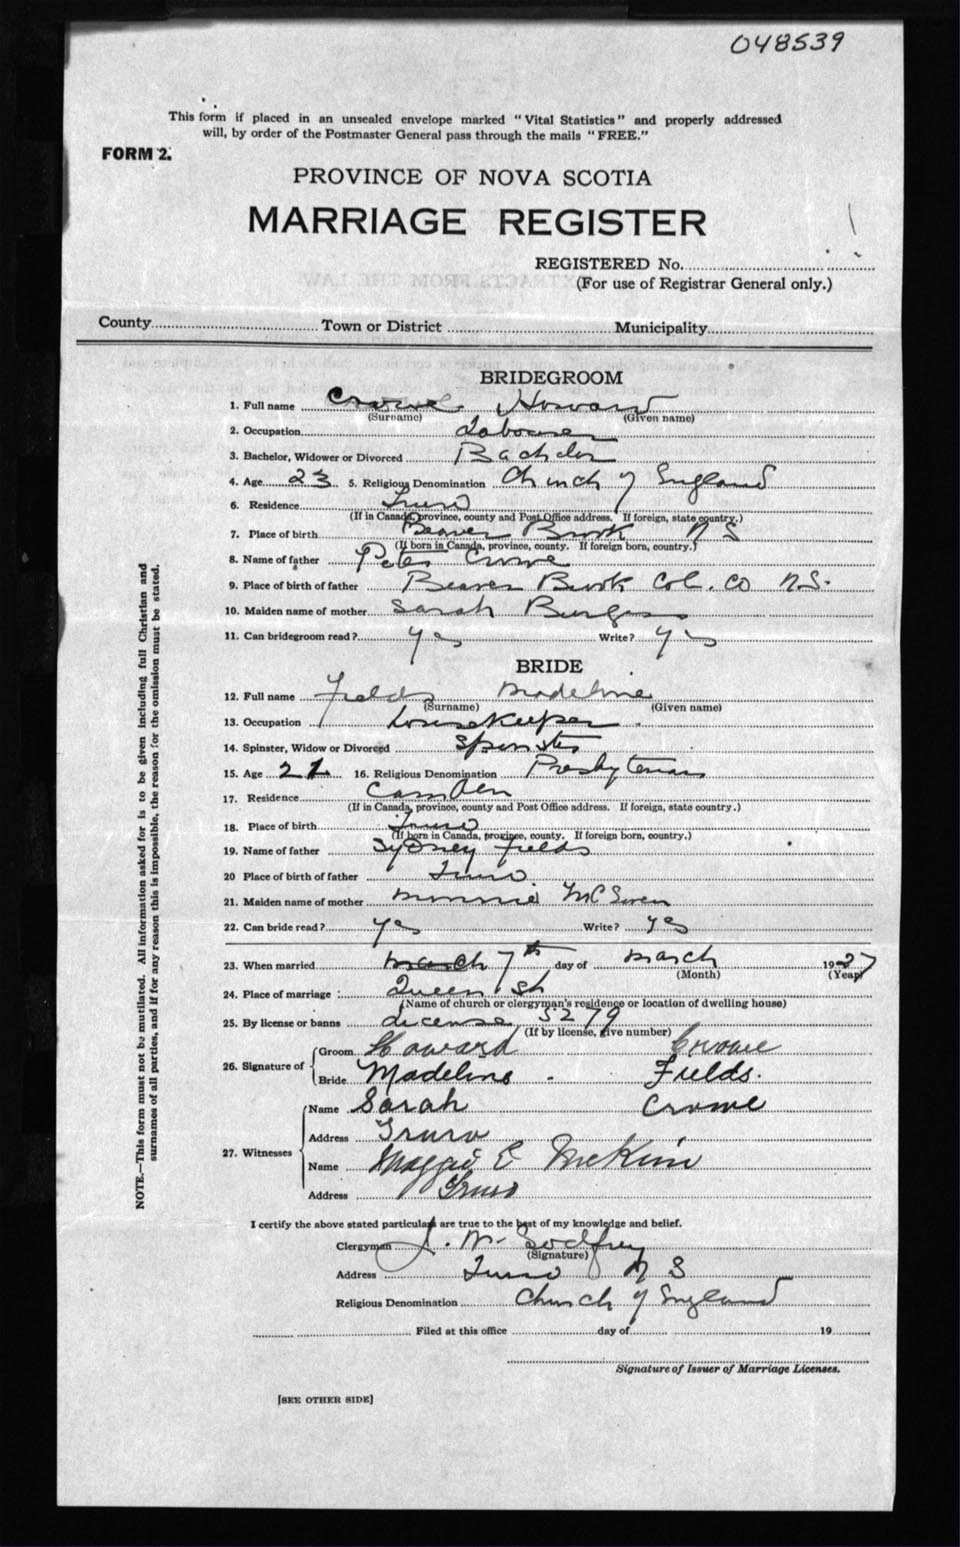 048539
This form if placed in an unsealed envelope marked "Vital Statistics" and properly addressed
will, by order of the Postmaster General pass through the mails "FREE."
FORM 2.
PROVINCE OF NOVA SCOTIA
MARRIAGE REGISTER
REGISTERED No.
(For use of Registrar General only.)
County Town or District Municipality
BRIDEGROOM
1. Full name Crowe Howard
(Surname) (Given name)
2. Occupation Labourer
3. Bachelor, Widower or Divorced Bachelor
4. Age 23 5. Religious Denomination Church of England
6. Residence Truro
(If in Canada, province, county and Post Office address. If foreign, state country.)
7. Place of birth Beaver Brook N S
(If born in Canada, province, county. If foreign born, country.)
8. Name of father Peter Crowe
9. Place of birth of father Beaver Brook Col. Co N.S.
10. Maiden name of mother Sarah Burgess
11. Can bridegroom read? Yes Write? Yes
BRIDE
12. Full name Fields Madeline
(Surname) (Given name)
13. Occupation housekeeper
14. Spinster, Widow or Divorced Spinster
15. Age 21 16. Religious Denomination Presbyterian
17. Residence Camden
(If in Canada, province, county and Post Office address. If foreign, state country.)
18. Place of birth Truro
(If born in Canada, province, county. If foreign born, country.)
19. Name of father Sydney Fields
20 Place of birth of father Truro
21. Maiden name of mother Minnie
22. Can bride read? Yes Write? Yes
23. When married March 7th day of March 1927
(Month) (Year)
24. Place of marriage Queen St
(Name of church or clergyman's residence or location of dwelling house)
25. By license or banns License 5279
(If by license, give number)
26. Signature of Groom Howard Crowe
Bride Madeline Fields.
27. Witnesses Name Sarah Crowe
Address Truro
Name Maggie E McKim
Address Truro
I certify the above stated particulars are true to the best of my knowledge and belief.
Clergyman J. W. Godfrey
(Signature)
Address Truro N S
Religious Denomination Church of England
Filed at this office day of 19
Signature of Issuer of Marriage Licenses.
[SEE OTHER SIDE]
NOTE.—This form must not be mutilated. All information asked for is to be given including full Christian and
surnames of all parties, and if for any reason this is impossible, the reason for the omission must be stated.